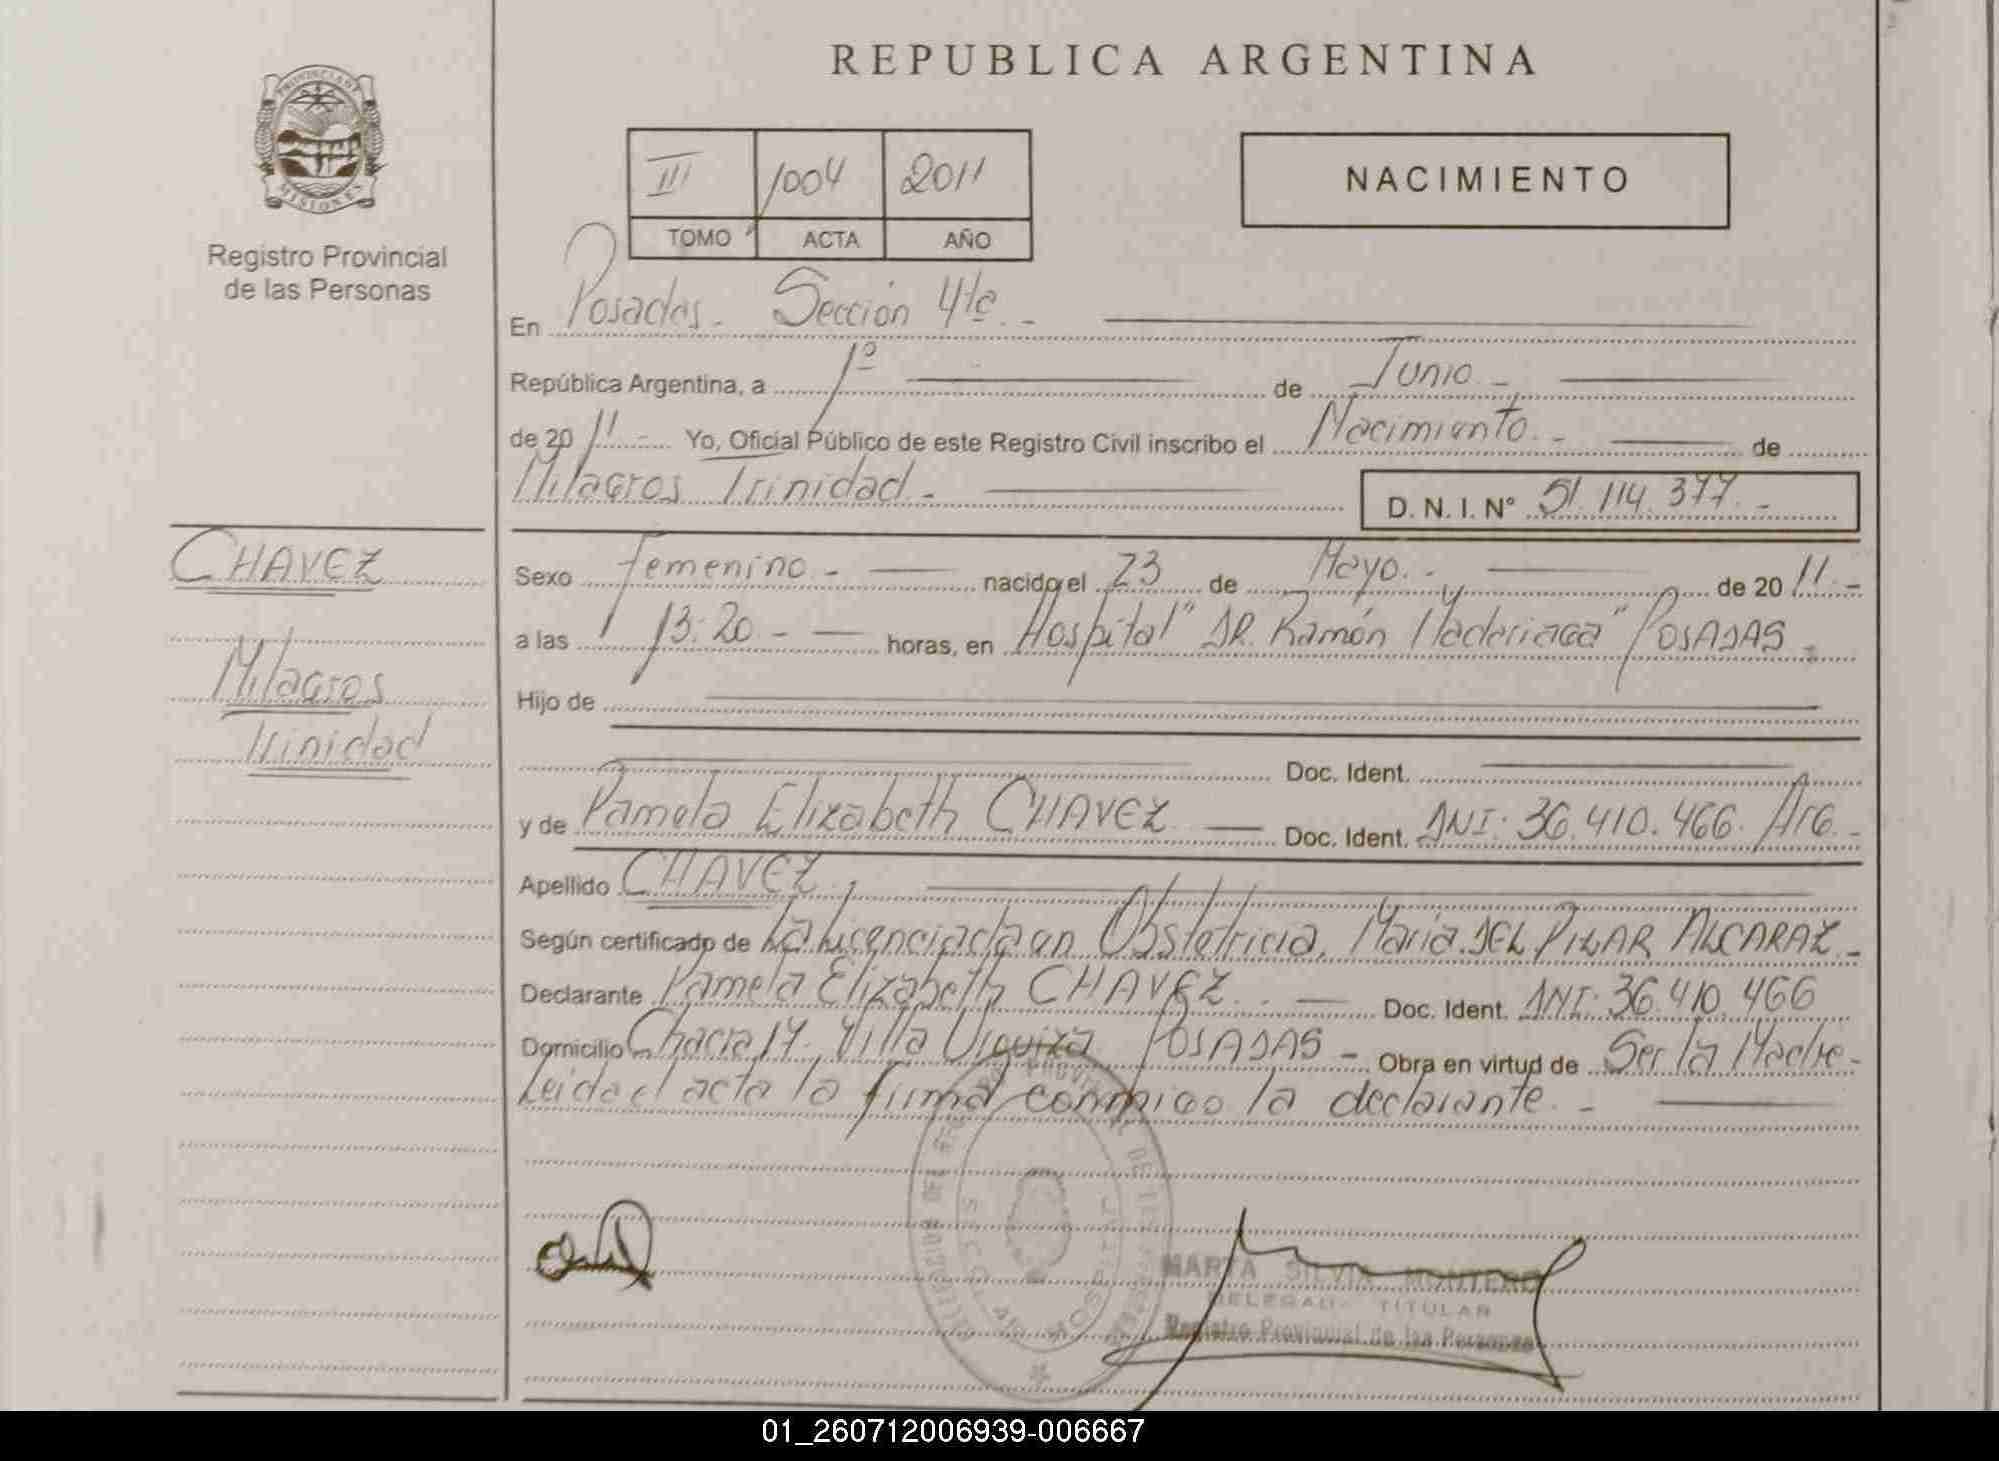 REPUBLICA ARGENTINA
PROVINCIA DE
MISIONES
Registro Provincial
de las Personas
III 1004 2011
TOMO ACTA AÑO
NACIMIENTO
En Posadas - Sección 4ta. -
República Argentina, a 1º de Junio -
de 2011 - Yo, Oficial Público de este Registro Civil inscribo el Nacimiento - de
Milagros Trinidad - D. N. I. Nº 51.114.377. -
CHAVEZ
Milagros
Trinidad
Sexo Femenino - nacido el 23 de Mayo. - de 2011. -
a las 13:20 - horas, en Hospital "DR. Ramón Madariaga" POSADAS -
Hijo de
Doc. Ident.
y de Pamela Elizabeth CHAVEZ Doc. Ident. DNI: 36.410.466. Arg. -
Apellido CHAVEZ.
Según certificado de La Licenciada en Obstetricia, María DEL PILAR ALCARAZ -
Declarante Pamela Elizabeth CHAVEZ. Doc. Ident. DNI: 36.410.466
Domicilio Chacra 17. Villa Urquiza POSADAS - Obra en virtud de Ser la Madre -
Leida el acta la firma conmigo la declarante. -
MARTA SILVIA MONTERO
DELEGADA TITULAR
Registro Provincial de las Personas
01_260712006939-006667